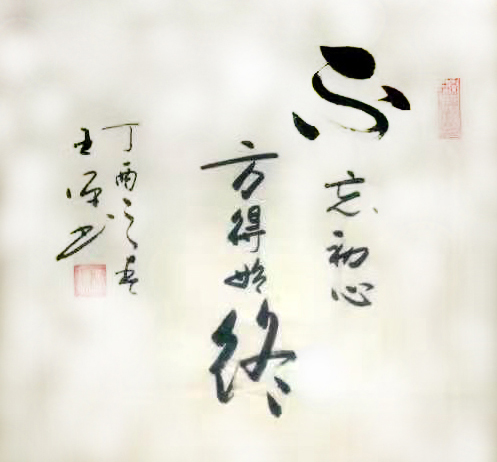 不忘初心
方得始终
丁酉之春
王
书